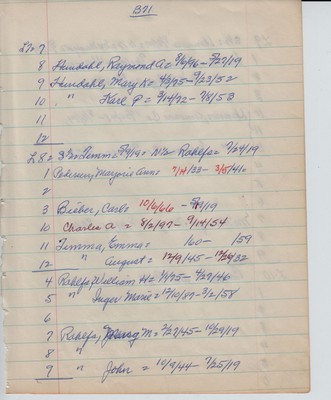 B21
L 7= 7
8 Hundahl, Raymond A = 8/6/96 - 5/27/19
9 Hundahl, Mary K = 4/3/75 - 9/23/52
10 " Karl P = 3/14/72 - 7/8/53
11
12
L 8 = S½ Temme 5/9/19 = N½ Rahlfs = 7/24/19
1 Pedersen, Marjorie Ann = 7/14/33 - 3/5/41
2
3 Bieber, Carl = 10/6/66 - 5/9/19
10 Charlie A = 8/2/97 - 9/14/54
11 Temme, Emma = 1860 - 1/59
12 " August = 12/9/45 - 12/24/32
4 Rahlfs, William H = 1/1/75 - 4/27/46
5 " Inger Marie = 12/10/89 - 3/2/58
6
7 Rahlfs, M = 3/27/45 - 10/29/19
8 "
9 " John = 10/9/44 - 7/25/19